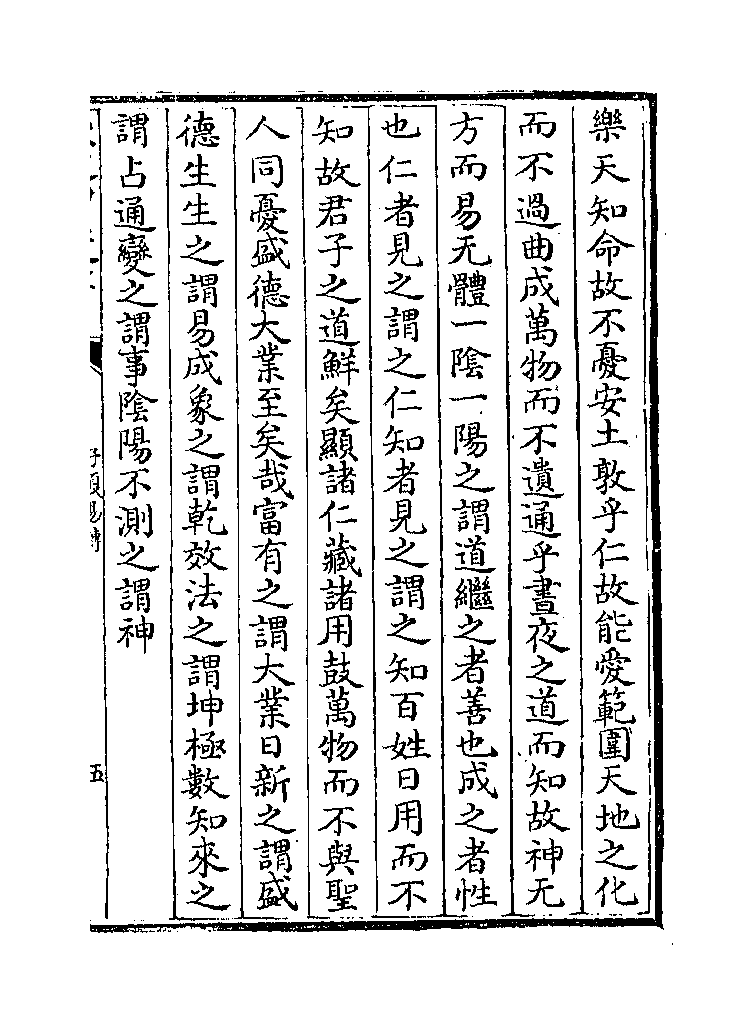 樂天知命故不憂安土敦乎仁故能愛範圍天地之化
而不過曲成萬物而不遺通乎晝夜之道而知故神无
方而易无體一陰一陽之謂道繼之者善也成之者性
也仁者見之謂之仁知者見之謂之知百姓日用而不
知故君子之道鮮矣顯諸仁藏諸用鼓萬物而不與聖
人同憂盛德大業至矣哉富有之謂大業日新之謂盛
德生生之謂易成象之謂乾效法之謂坤極數知來之
謂占通變之謂事陰陽不測之謂神
子夏易傳
五